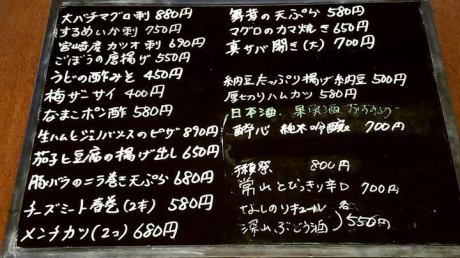 大バチマグロ刺 880円
するめいか刺 750円
宮崎産カツオ刺 690円
ごぼうの唐揚げ 550円
うどの酢みそ 450円
梅ザーサイ 400円
なまこポン酢 580円
生ハムとジェノバソースのピザ 890円
茄子と豆腐の揚げ出し 650円
豚バラのニラ巻き天ぷら 680円
チーズミート春巻(2本) 580円
メンチカツ(2コ) 680円
舞茸の天ぷら 580円
マグロのカマ焼き 650円
真サバ開き(大) 700円
納豆たっぷり揚げ納豆 500円
厚切りハムカツ 580円
日本酒 果実酒
酔心 純米吟醸 700円
獺祭 800円
常山 とびっきり辛口 700円
なしのリキュール 各
深山ぶどう酒 550円